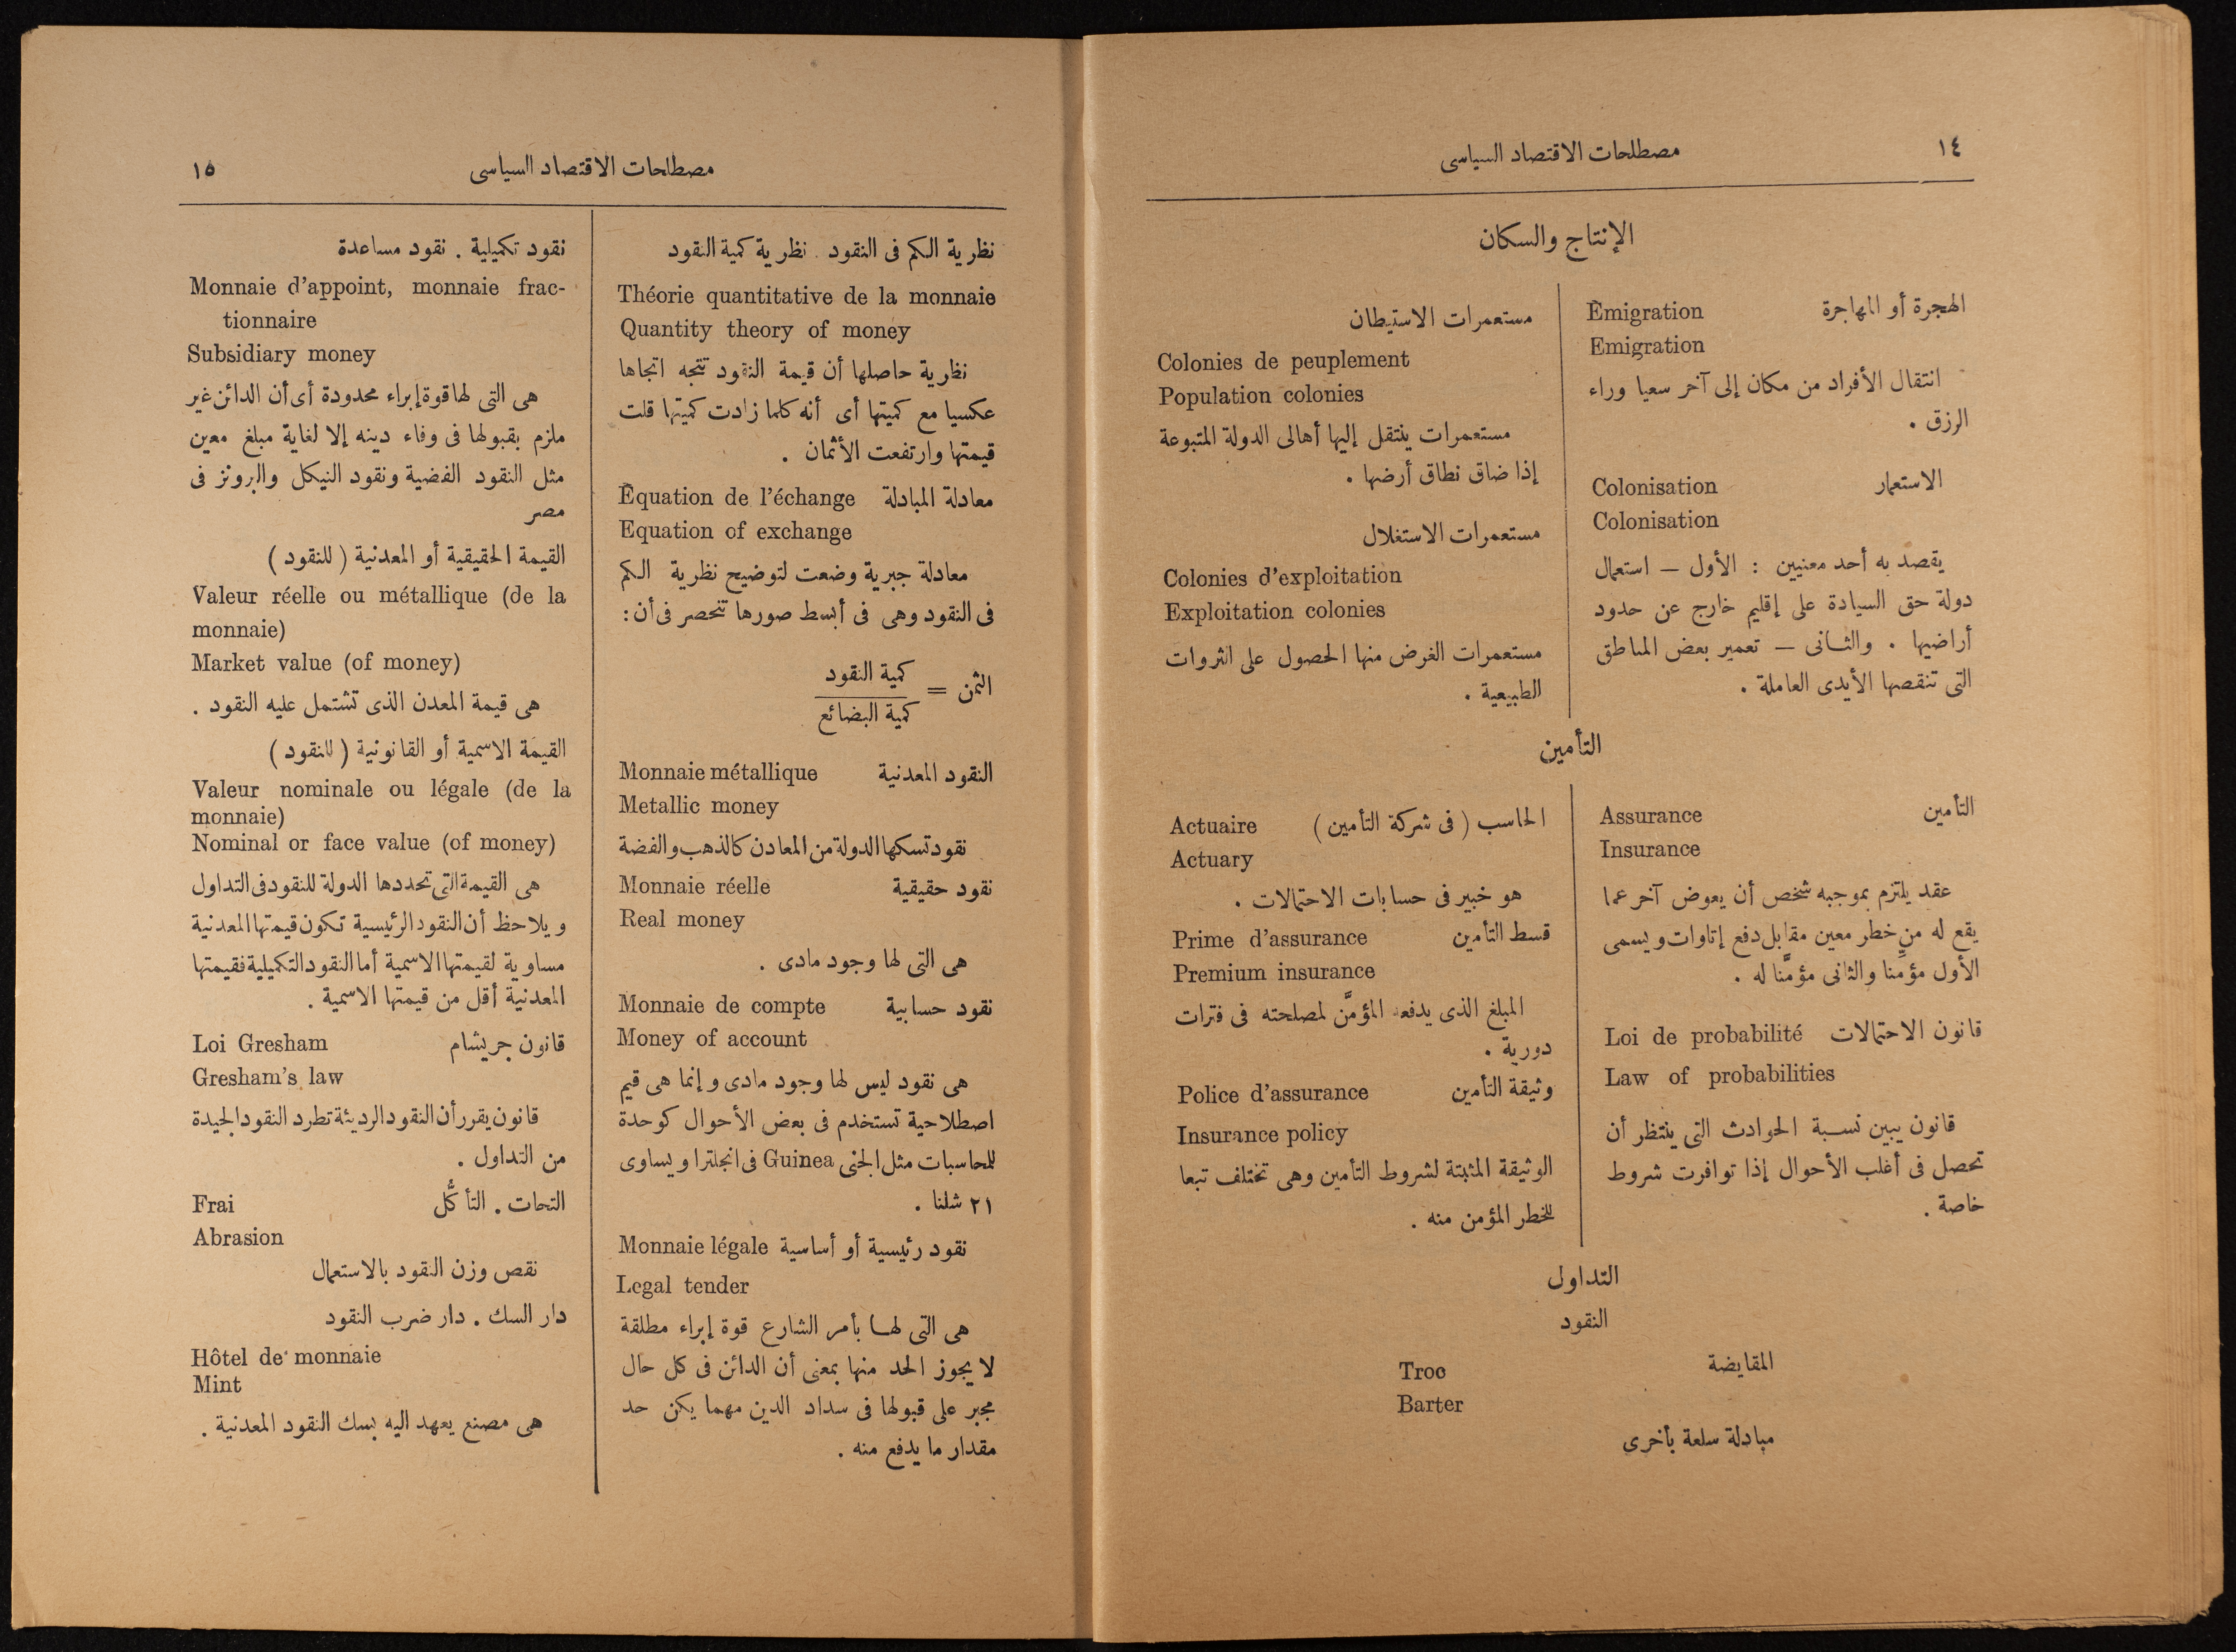 ١٤
مصطلحات الاقتصاد السياسى
الإنتاج والسكان
الهجرة أو المهاجرة Émigration
Emigration
انتقال الأفراد من مكان إلى آخر سعيا وراء
الرزق .
الاستعمار Colonisation
Colonisation
يقصد به أحد معنيين : الأول — استعمال
دولة حق السيادة على إقليم خارج عن حدود
أراضيها . والثانى — تعمير بعض المناطق
التى تنقصها الأيدى العاملة .
مستعمرات الاستيطان
Colonies de peuplement
Population colonies
مستعمرات ينتقل إليها أهالى الدولة المتبوعة
إذا ضاق نطاق أرضها .
مستعمرات الاستغلال
Colonies d'exploitation
Exploitation colonies
مستعمرات الغرض منها الحصول على الثروات
الطبيعية .
التأمين
التأمين Assurance
Insurance
عقد يلتزم بموجبه شخص أن يعوض آخر عما
يقع له من خطر معين مقابل دفع إتاوات ويسمى
الأول مؤمِّنا والثانى مؤمَّنا له .
قانون الاحتمالات Loi de probabilité
Law of probabilities
قانون يبين نسبة الحوادث التى ينتظر أن
تحصل فى أغلب الأحوال إذا توافرت شروط
خاصة .
الحاسب ( فى شركة التأمين ) Actuaire
Actuary
هو خبير فى حسابات الاحتمالات .
قسط التأمين Prime d'assurance
Premium insurance
المبلغ الذى يدفعه المؤمَّن لمصلحته فى فترات
دورية .
وثيقة التأمين Police d'assurance
Insurance policy
الوثيقة المثبتة لشروط التأمين وهى تختلف تبعا
للخطر المؤمن منه .
التداول
النقود
المقايضة Troc
Barter
مبادلة سلعة بأخرى
مصطلحات الاقتصاد السياسى
١٥
نظرية الكم فى النقود . نظرية كمية النقود
Théorie quantitative de la monnaie
Quantity theory of money
نظرية حاصلها أن قيمة النقود تتجه اتجاها
عكسيا مع كميتها أى أنه كلما زادت كميتها قلت
قيمتها وارتفعت الأثمان .
معادلة المبادلة Équation de l'échange
Equation of exchange
معادلة جبرية وضعت لتوضيح نظرية الكم
فى النقود وهى فى أبسط صورها تنحصر فى أن :
كمية النقود
الثمن =
كمية البضائع
النقود المعدنية Monnaie métallique
Metallic money
نقود تسكها الدولة من المعادن كالذهب والفضة
نقود حقيقية Monnaie réelle
Real money
هى التى لها وجود مادى .
نقود حسابية Monnaie de compte
Money of account
هى نقود ليس لها وجود مادى وإنما هى قيم
اصطلاحية تستخدم فى بعض الأحوال كوحدة
للمحاسبات مثل الجنى Guinea فى انجلترا ويساوى
٢١ شلنا .
نقود رئيسية أو أساسية Monnaie légale
Legal tender
هى التى لها بأمر الشارع قوة إبراء مطلقة
لا يجوز الحد منها بمعنى أن الدائن فى كل حال
مجبر على قبولها فى سداد الدين مهما يكن حد
مقدار ما يدفع منه .
نقود تكميلية . نقود مساعدة
Monnaie d'appoint, monnaie frac-
tionnaire
Subsidiary money
هى التى لها قوة إبراء محدودة أى أن الدائن غير
ملزم بقبولها فى وفاء دينه إلا لغاية مبلغ معين
مثل النقود الفضية ونقود النيكل والبرونز فى
مصر
القيمة الحقيقية أو المعدنية ( للنقود )
Valeur réelle ou métallique (de la
monnaie)
Market value (of money)
هى قيمة المعدن الذى تشتمل عليه النقود .
القيمة الاسمية أو القانونية ( للنقود )
Valeur nominale ou légale (de la
monnaie)
Nominal or face value (of money)
هى القيمة التى تحددها الدولة للنقود فى التداول
ويلاحظ أن النقود الرئيسية تكون قيمتها المعدنية
مساوية لقيمتها الاسمية أما النقود التكميلية فقيمتها
المعدنية أقل من قيمتها الاسمية .
قانون جريشام Loi Gresham
Gresham's law
قانون يقرر أن النقود الرديئة تطرد النقود الجيدة
من التداول .
التحات . التأكُّل Frai
Abrasion
نقص وزن النقود بالاستعمال
دار السك . دار ضرب النقود
Hôtel de monnaie
Mint
هى مصنع يعهد اليه بسك النقود المعدنية .